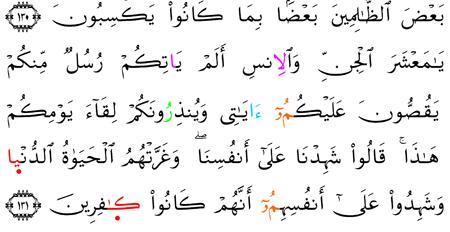 بَعْضَ ٱلظَّٰلِمِينَ بَعْضَۢا بِمَا كَانُواْ يَكْسِبُونَ ١٣٠
يَٰمَعْشَرَ ٱلْجِنِّ وَٱلِانسِ أَلَمْ يَاتِكُمْ رُسُلٌ مِّنكُمْ
يَقُصُّونَ عَلَيْكُمُۥٓ ءَايَٰتِى وَيُنذِرُونَكُمْ لِقَآءَ يَوْمِكُمْ
هَٰذَا ۚ قَالُواْ شَهِدْنَا عَلَىٰٓ أَنفُسِنَا ۖ وَغَرَّتْهُمُ ٱلْحَيَوٰةُ ٱلدُّنْيَا
وَشَهِدُواْ عَلَىٰٓ أَنفُسِهِمُۥٓ أَنَّهُمْ كَانُواْ كَٰفِرِينَ ١٣١